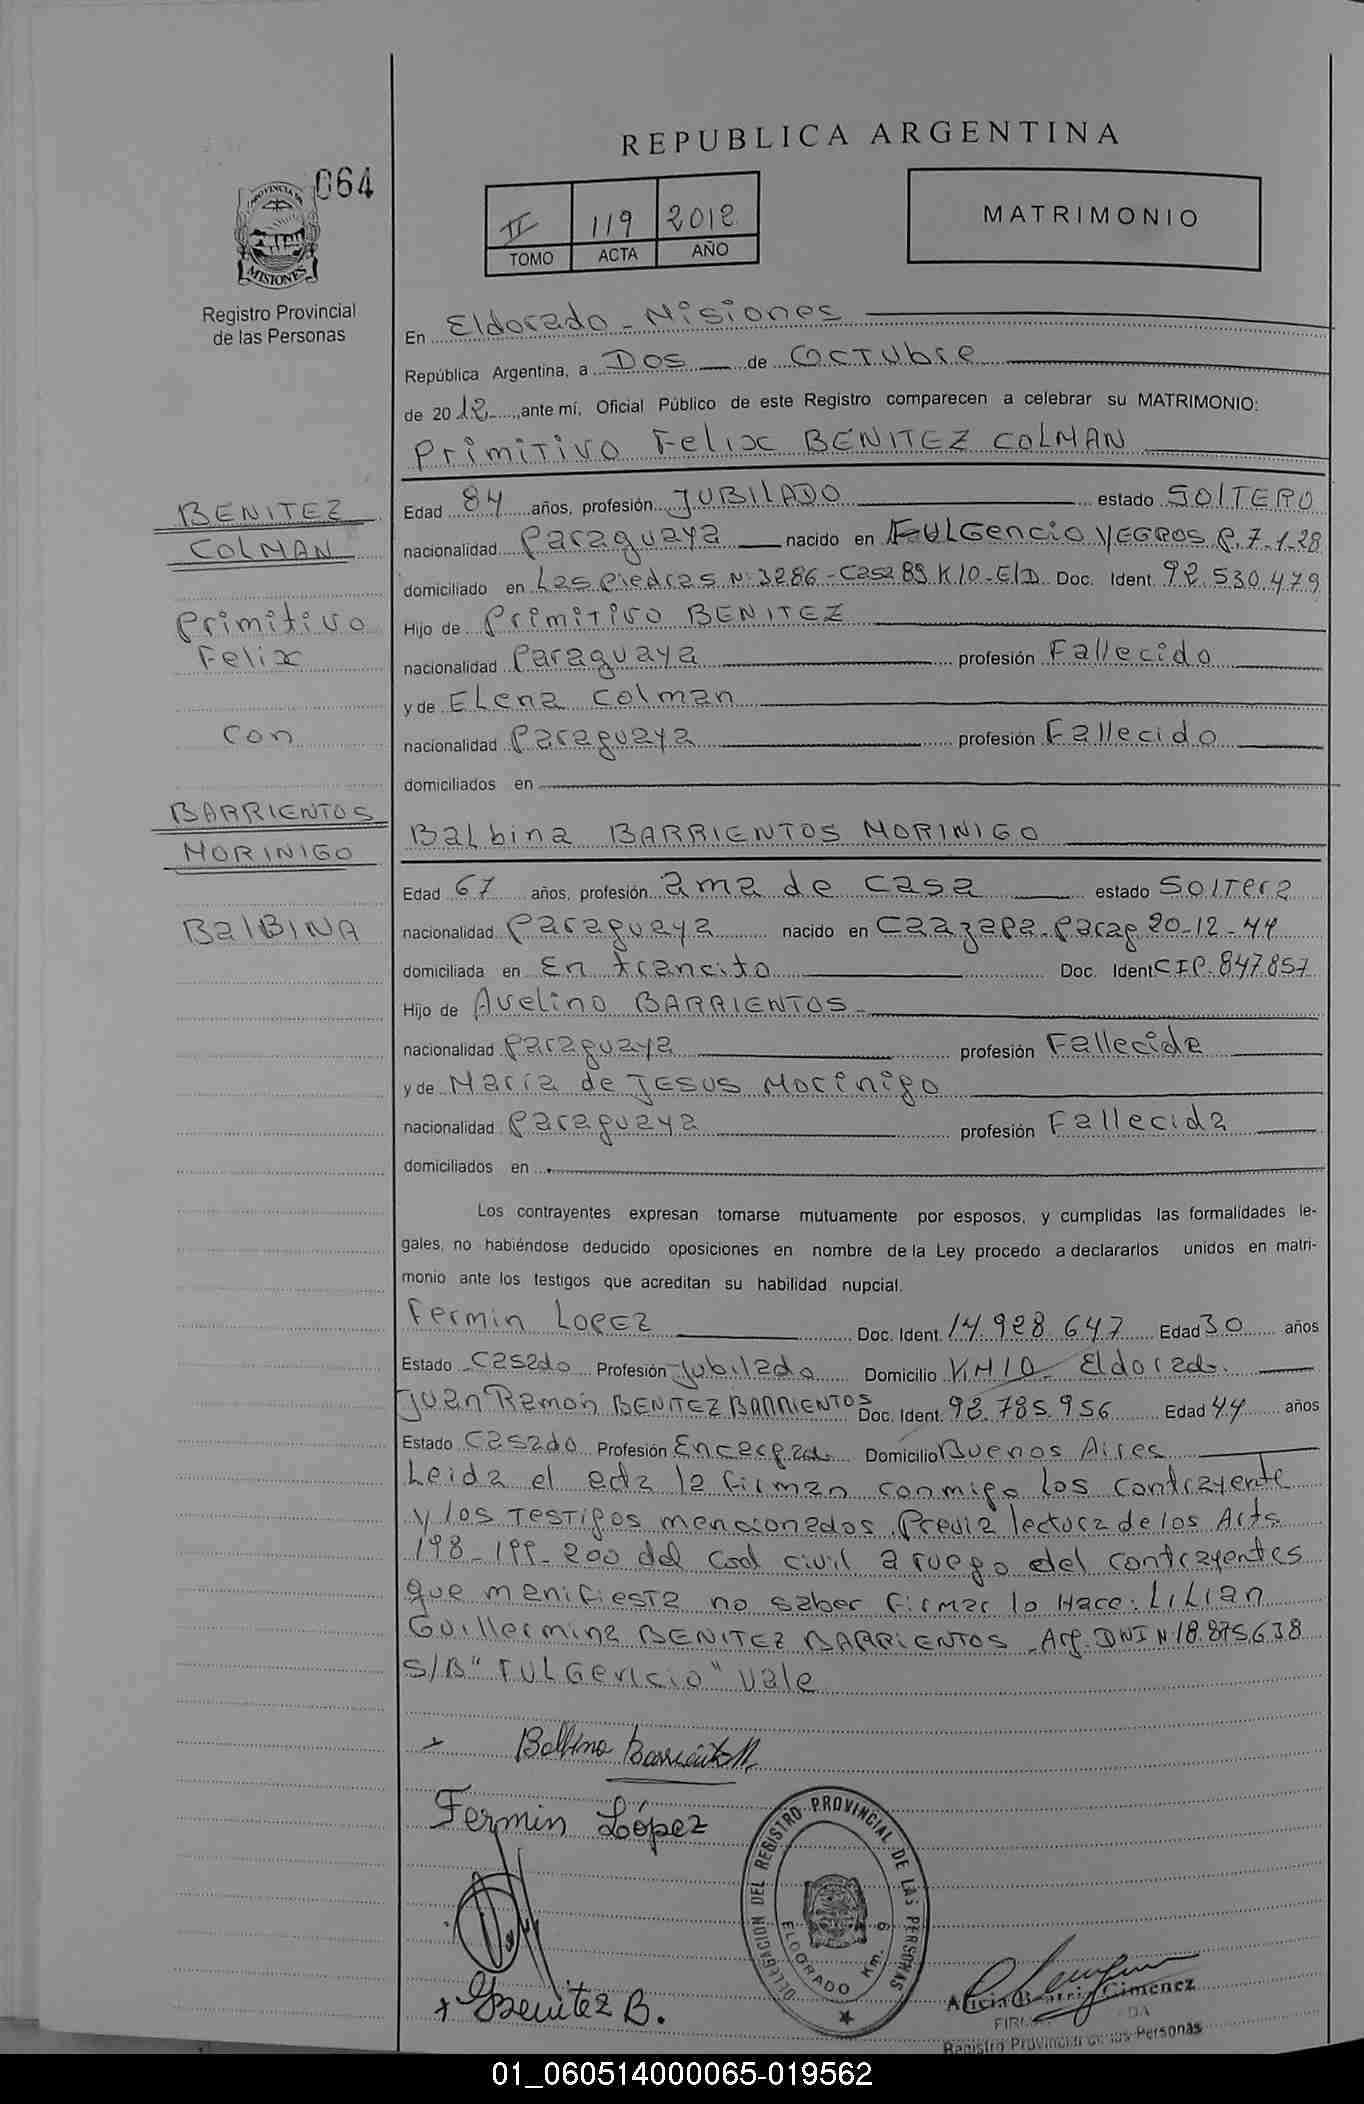 REPUBLICA ARGENTINA
064
PROVINCIA DE
MISIONES
Registro Provincial
de las Personas
II 119 2012
TOMO ACTA AÑO
MATRIMONIO
En Eldorado - Misiones
República Argentina, a Dos de Octubre
de 2012, ante mí, Oficial Público de este Registro comparecen a celebrar su MATRIMONIO:
Primitivo Felix BENITEZ COLMAN
BENITEZ
COLMAN
Primitivo
Felix
con
BARRIENTOS
MORINIGO
BalBINA
Edad 84 años, profesión JUBILADO estado SOlTERO
nacionalidad Paraguaya nacido en FULGencio YEGROS P. 7-1-28
domiciliado en Las Piedras N: 3286 - Casa 89 K10 - ElD. Doc. Ident. 92.530.479
Hijo de Primitivo BENITEZ
nacionalidad Paraguaya profesión Fallecido
y de Elena Colman
nacionalidad Paraguaya profesión Fallecido
domiciliados en
Balbina BARRIENTOS MORINIGO
Edad 67 años, profesión ama de casa estado SolTera
nacionalidad Paraguaya nacido en Caazapa - Parag 20-12-44
domiciliada en En trancito Doc. Ident CIP. 847.857
Hijo de Avelino BARRIENTOS -
nacionalidad Paraguaya profesión Fallecida
y de Maria de JESUS Morinigo
nacionalidad Paraguaya profesión Fallecida
domiciliados en
Los contrayentes expresan tomarse mutuamente por esposos, y cumplidas las formalidades le-
gales, no habiéndose deducido oposiciones en nombre de la Ley procedo a declararlos unidos en matri-
monio ante los testigos que acreditan su habilidad nupcial.
Fermin LOPEZ Doc. Ident. 14.928.647 Edad 30 años
Estado Casado Profesión Jubilado Domicilio KM10 - Eldorado.
Juan Ramón BENITEZ BARRIENTOS Doc. Ident. 92.785.956 Edad 44 años
Estado Casado Profesión Encargado Domicilio Buenos Aires
Leida el acta la firman conmigo los contrayente
y los Testigos mencionados. Previa lectura de los Arts
198-199-200 del Cod civil a ruego del contrayentes
que manifiesta no saber firmar lo Hace: LiLian
Guillermina BENITEZ BARRIENTOS - Arg. DNI N 18.875.638
S/B "FULGencio" vale
Balbina Barrientos M.
Fermin López
Benitez B.
DELEGACION DEL REGISTRO PROVINCIAL DE LAS PERSONAS
ELDORADO Km. 9
Alicia Beatriz Gimenez
Registro Provincial de las Personas
01_060514000065-019562